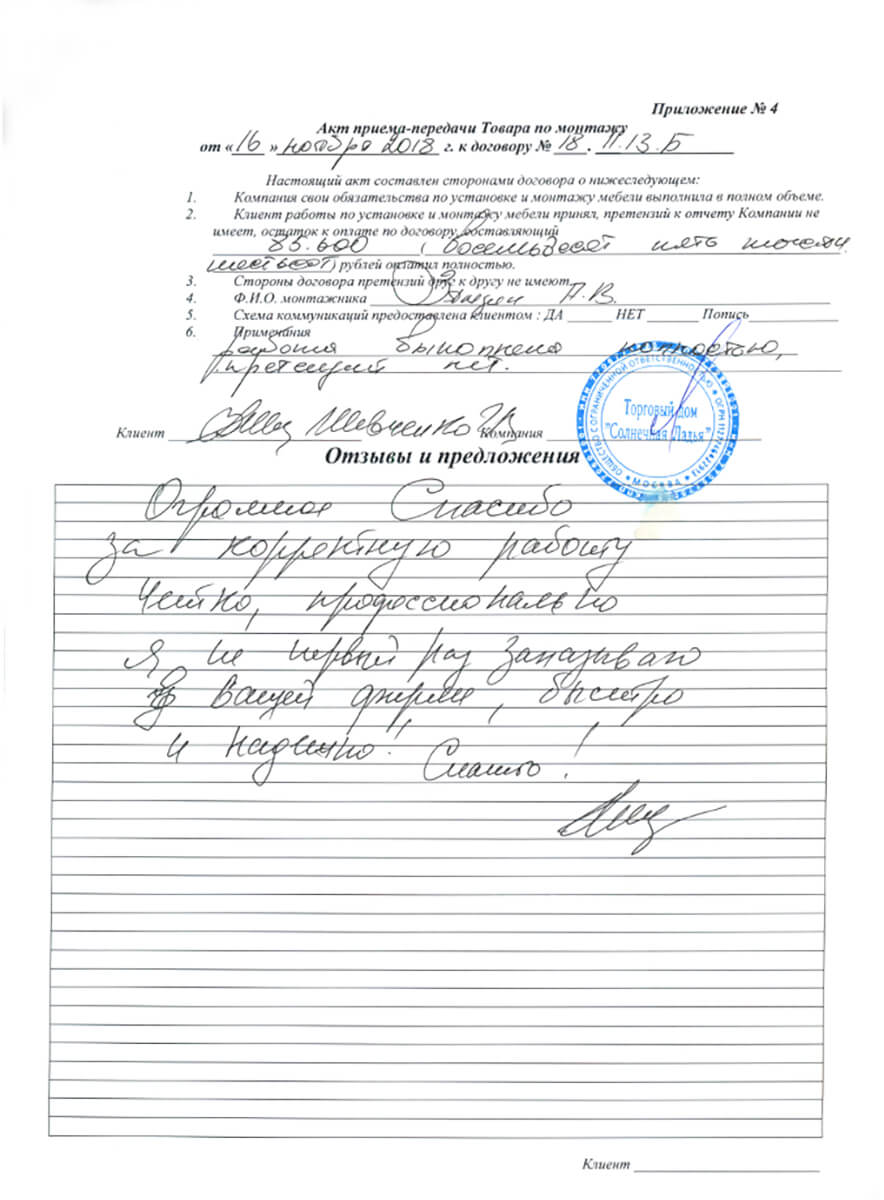 Приложение № 4
Акт приема-передачи Товара по монтажу
от «16» ноября 2018 г. к договору № 18.11.13.Б
Настоящий акт составлен сторонами договора о нижеследующем:
1. Компания свои обязательства по установке и монтажу мебели выполнила в полном объеме.
2. Клиент работы по установке и монтажу мебели принял, претензий к отчету Компании не
имеет, остаток к оплате по договору, составляющий
85.600 (восемьдесят пять тысяч
шестьсот) рублей оплатил полностью.
3. Стороны договора претензий друг к другу не имеют.
4. Ф.И.О. монтажника П.В.
5. Схема коммуникаций предоставлена клиентом : ДА ______ НЕТ ______ Попись
6. Примечания
работа выполнена полностью,
претензий нет.
Клиент Шевченко Компания
ОБЩЕСТВО С ОГРАНИЧЕННОЙ ОТВЕТСТВЕННОСТЬЮ
Торговый дом
"Солнечная Ладья"
МОСКВА
Отзывы и предложения
Огромное Спасибо
за корректную работу
Четко, профессионально
Я не первый раз заказываю
в Вашей фирме, быстро
и надежно! Спасибо!
Клиент